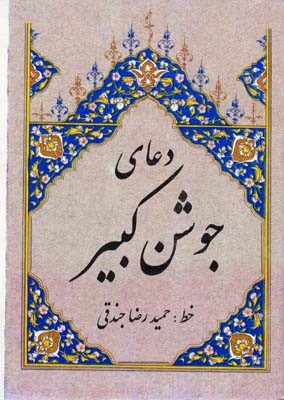 دعای
جوشن کبیر
خط: حمید رضا جندقی